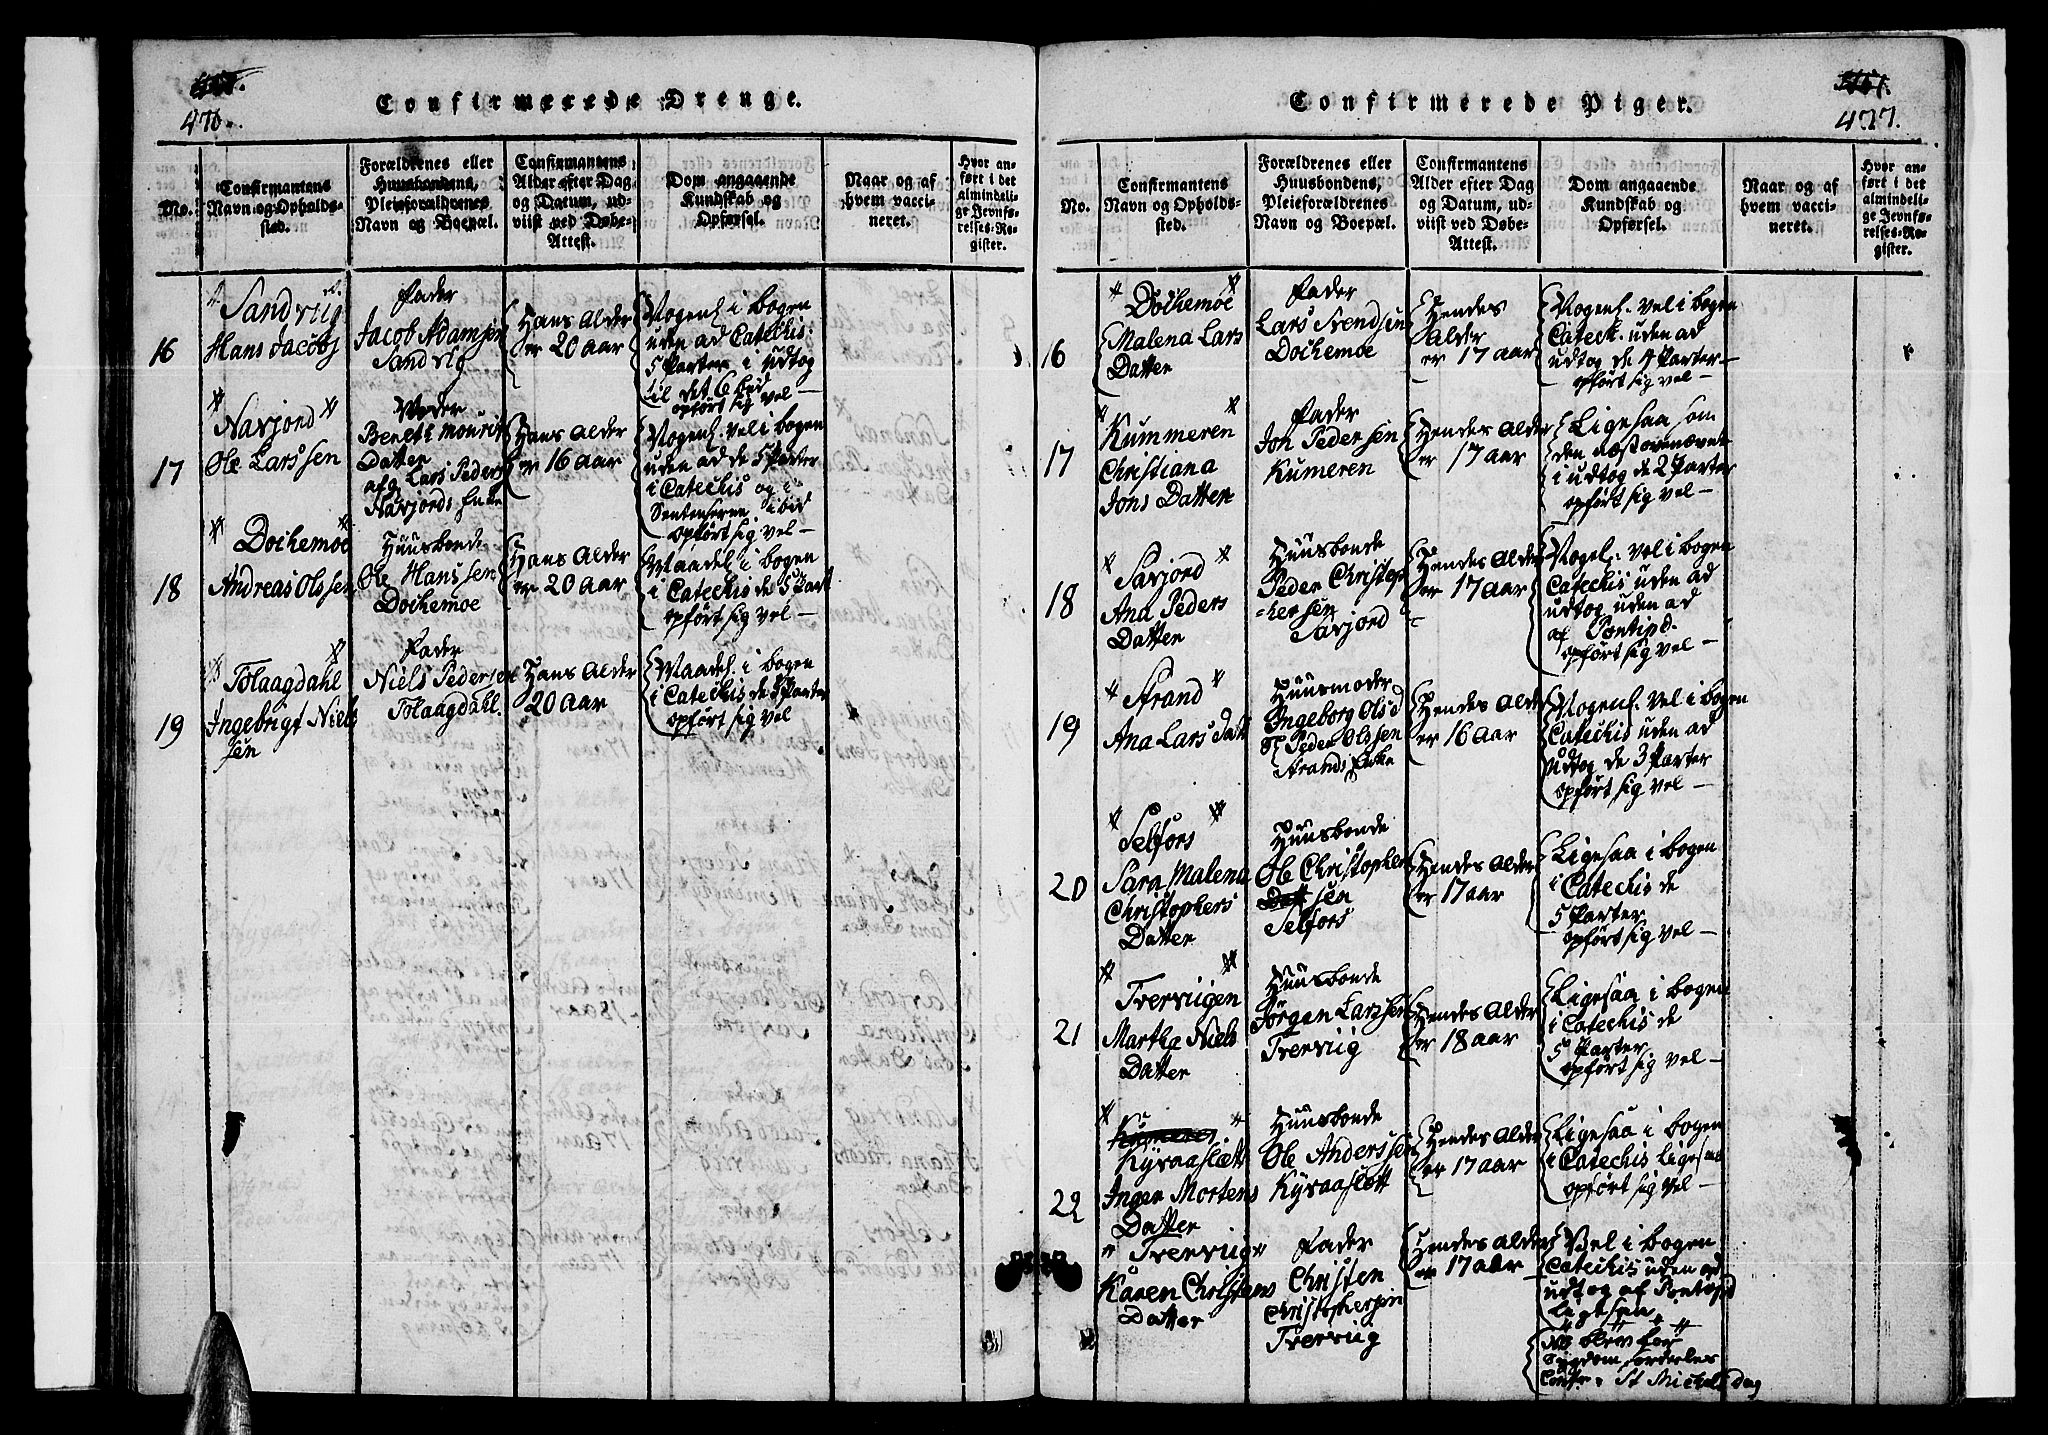 476.
Confirmerede Drenge.
No.
Confirmantens
Navn og Opholds-
sted.
Forældrenes eller
Huusbondens,
Pleieforældrenes
Navn og Boepæl.
Confirmantens
Alder efter Dag
og Datum, ud-
viist ved Døbe-
Attest.
Dom angaaende
Kundskab og
Opførsel.
Naar og af
hvem vacci-
neret.
Hvor an-
ført i det
almindeli-
ge Jevnfø-
relses-Re-
gister.
16
Sandviig
Hans Jacobs
Fader
Jacob Adamsen
Sandvig
Hans Alder
er 20 aar
i bogen
uden ad Catechis:
5 Parter i udtog
til det 6 bud
opført sig vel –
17
Navjord
Ole Larssen
Moder
Datter
afg. Lars Peders
Navjords Enke
Hans Alder
er 16 aar
vel i bogen
uden ad de 5 Parter
i Catechis og i
opført sig vel –
18
Dochemoe
Andreas Olssen
Huusbonde
Ole Hanssen
Dochemoe
Hans Alder
er 20 aar
Maadel. i bogen
i Catechis de 5 Part
opført sig vel –
19
Tolaagdahl
Ingebrigt Niels
sen
Fader
Niels Pedersen
Tolaagdahl.
Hans Alder
20 Aar
Maadel. i bogen
i Catechis de 5 Parter
opført sig vel
477.
Confirmerede Piger.
No.
Confirmantens
Navn og Opholds-
sted.
Forældrenes eller
Huusbondens,
Pleieforældrenes
Navn og Boepæl.
Confirmantens
Alder efter Dag
og Datum, ud-
viist ved Døbe-
Attest.
Dom angaaende
Kundskab og
Opførsel.
Naar og af
hvem vacci-
neret.
Hvor an-
ført i det
almindeli-
ge Jevnfø-
relses-Re-
gister.
16
Dochemoe
Malena Lars
Datter
Fader
Lars Svendsen
Dochemoe
Hendes
Alder
er 17 aar
vel i bogen
Catech. uden ad
udtog de 4 Parter –
opført sig vel –
17
Kummeren
Christiana
Jons Datter
Fader
Jon Pedersen
Kumeren
Hendes Alder
er 17 aar
Ligesaa som
den næstovennævnt
i udtog de 2 Parter
opført sig vel –
18
Savjord
Ana Peders
Datter
Huusbonde
Peder Christop
-hersen
Savjord
Hendes Alder
er 17 Aar
vel i bogen
Catechis uden ad
udtog uden ad
af Pontipd.
opført sig vel –
19
Strand
Ana Lars Datt
Huusmoder
Ingeborg Olsd
Peder Olssen
Strands Enke
Hendes Alder
er 16 Aar
vel i bogen
Catechis uden ad
udtog de 3 Parter
opført sig vel –
20
Selfors
Sara Malena
Christophers
Datter
Huusbonde
Ole Christopher
sen
Selfors
Hendes Alder
er 17 aar
Ligesaa i bogen
i Catechis de
5 Parter
opført sig vel –
21
Tverviigen
Martha Niels
Datter
Huusbonde
Jørgen Larssen
Tverviig
Hendes Alder
er 18 aar
Ligesaa i bogen
i Catechis de
5 Parter
opført sig vel –
22
Kyraaslætt
Ingen Mortens
Datter
Huusbonde
Ole Anderssen
Kyraaslett
Hendes Alder
er 17 aar
Ligesaa i bogen
i Catechis Ligesaa
opført sig vel –
Tverviig
Karen Christens
Datter
Fader
Christen
Christophersen
Tverviig
Hendes Alder
er 17 aar
Vel i bogen
Catechis uden ad
udtog af Pontopd
Ligesaa
NB blev for
Sygdom særdeles
Conf. St Michels dag